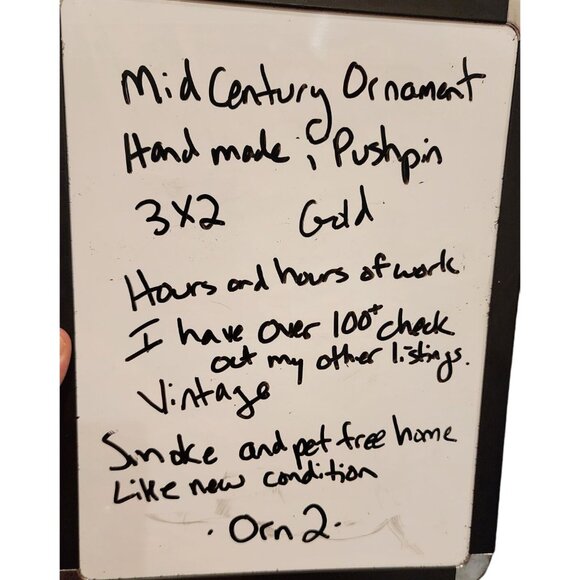 Mid Century Ornament
Hand made ; Pushpin
3x2 Gold
Hours and hours of work
I have over 100+ check
out my other listings.
Vintage
Smoke and pet free home
Like new condition
· Orn 2 ·